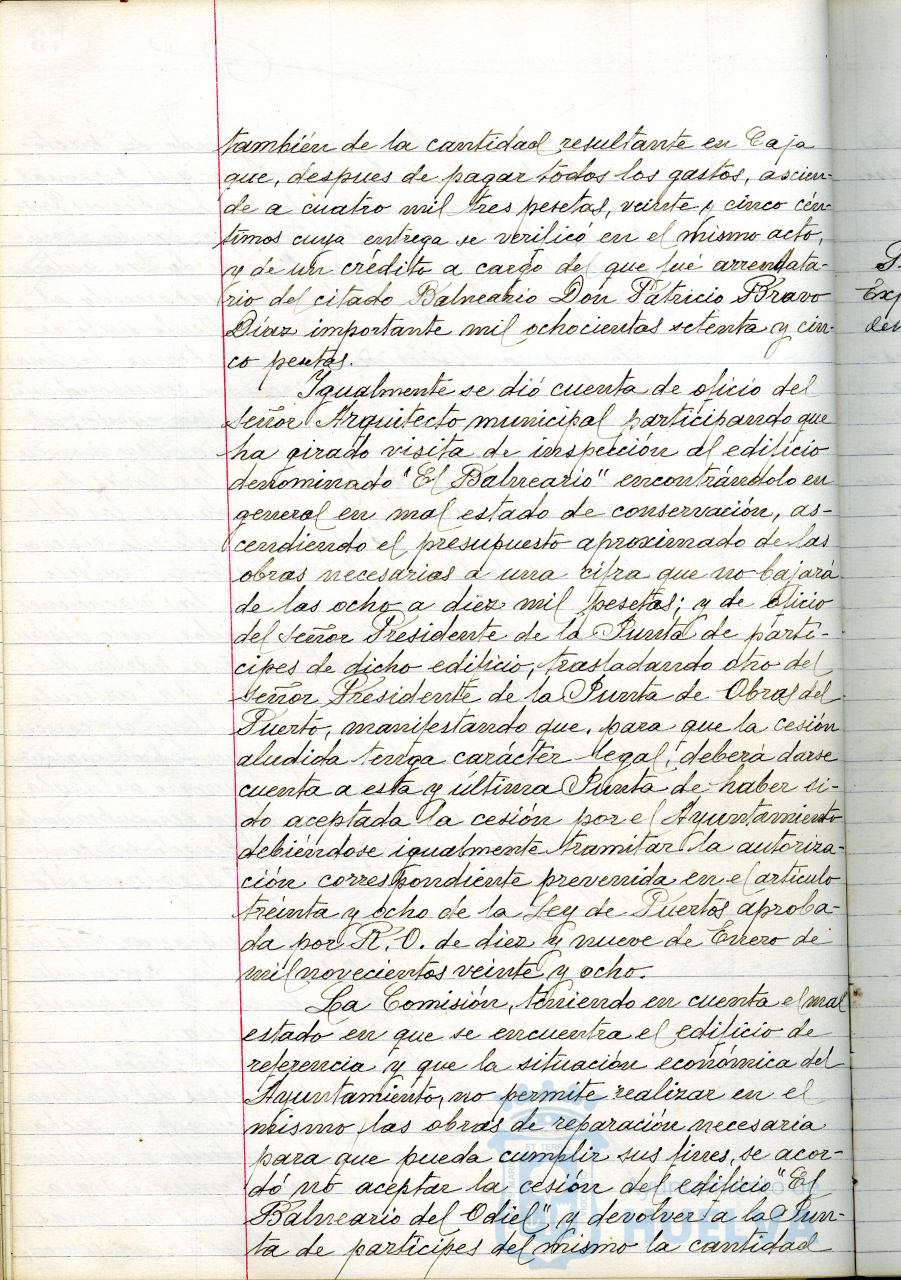 también de la cantidad resultante en Caja
que, despues de pagar todos los gastos, ascien-
de a cuatro mil tres pesetas, veinte y cinco cén-
timos cuya entrega se verificó en el mismo acto,
y de un crédito a cargo del que fué arrendata-
rio del citado Balneario Don Patricio Bravo
Díaz importante mil ochocientas setenta y cin-
co pesetas.
Igualmente se dió cuenta de oficio del
señor Arquitecto municipal participando que
ha girado visita de inspección al edificio
denominado "El Balneario" encontrándolo en
general en mal estado de conservación, as-
cendiendo el presupuesto aproximado de las
obras necesarias a una cifra que no bajará
de las ocho a diez mil pesetas; y de oficio
del señor Presidente de la Junta de partí-
cipes de dicho edificio, trasladando otro del
señor Presidente de la Junta de Obras del
Puerto, manifestando que, para que la cesión
aludida tenga carácter legal, deberá darse
cuenta a esta y última Junta de haber si-
do aceptada la cesión por el Ayuntamiento
debiéndose igualmente tramitar la autoriza-
ción correspondiente prevenida en el artículo
treinta y ocho de la Ley de Puertos aproba-
da por R. O. de diez y nueve de Enero de
mil novecientos veinte y ocho.
La Comisión, teniendo en cuenta el mal
estado en que se encuentra el edificio de
referencia y que la situación económica del
Ayuntamiento, no permite realizar en el
mismo las obras de reparación necesaria
para que pueda cumplir sus fines, se acor-
dó no aceptar la cesión del edificio "El
Balneario del Odiel" y devolver a la Jun-
ta de partícipes del mismo la cantidad
HUELVA